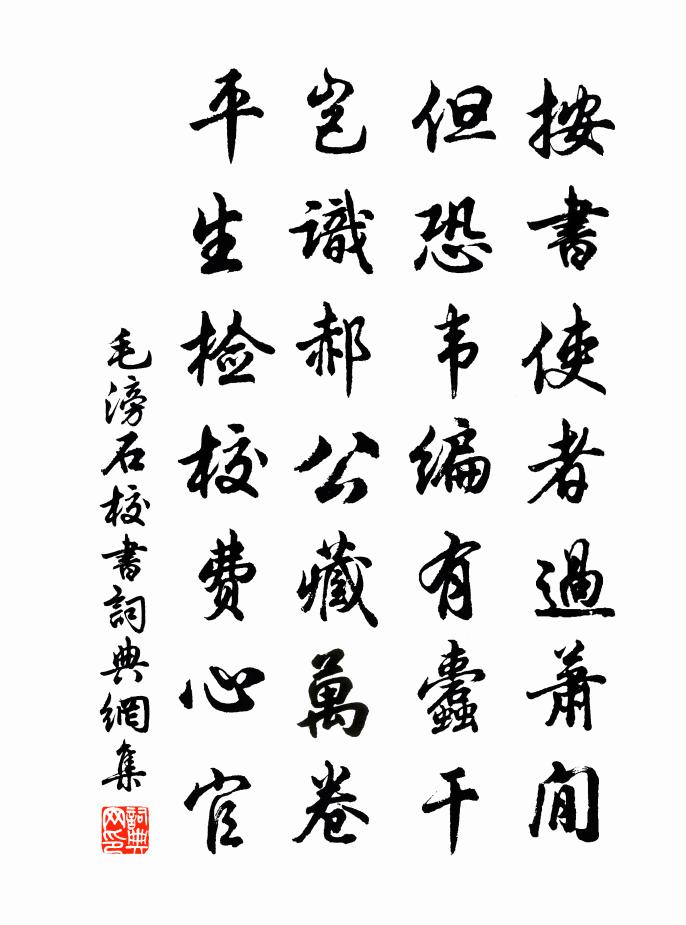 按書使者過蕭閒
但恐韦編有蠹干
豈識郝公藏萬卷
平生检校费心官
毛滂石校書詞典網集
詞典网印